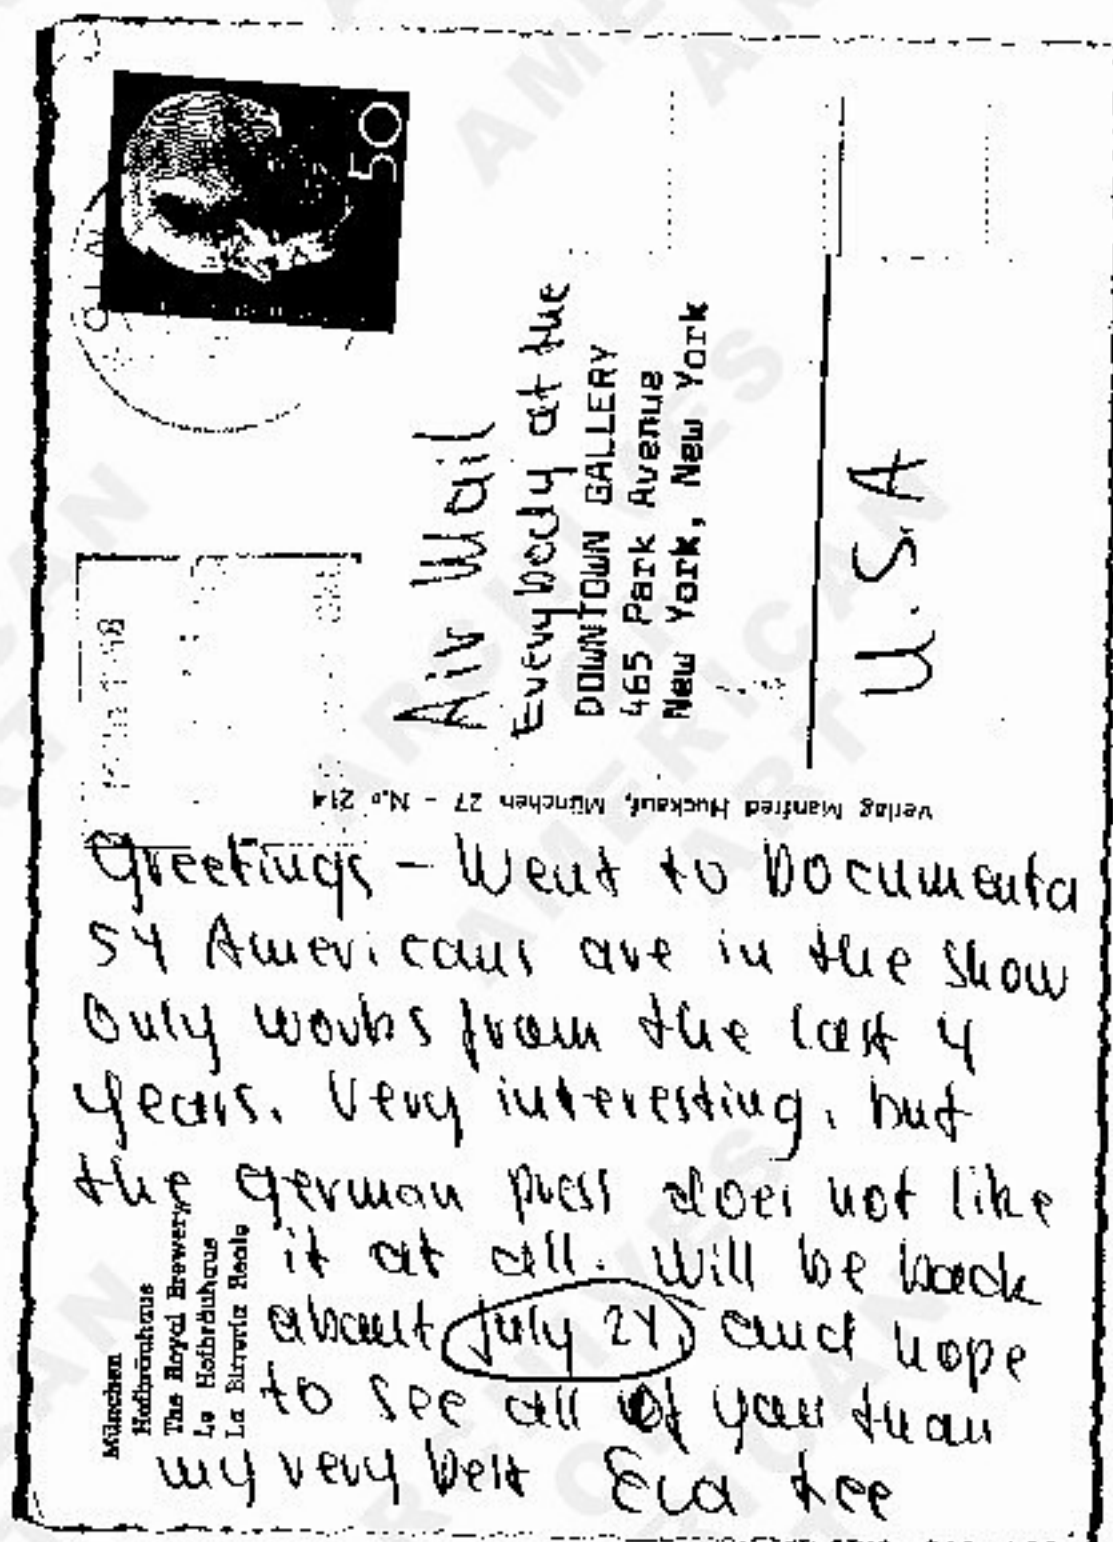 50
Air Mail
Everybody at the
DOWNTOWN GALLERY
465 Park Avenue
New York, New York
U.S.A
Verlag Manfred Huckauf, München 27 - N.º 214
Greetings - Went to Documenta
54 Americans are in the show
Only works from the last 4
years. Very interesting, but
the german press does not like
it at all. Will be back
about July 24, and hope
to see all of you than
my very best Eva Lee
München
Hofbräuhaus
The Royal Brewery
Le Hofbräuhaus
La Birreria Reale
ARCHIVES
OF
AMERICAN
ART